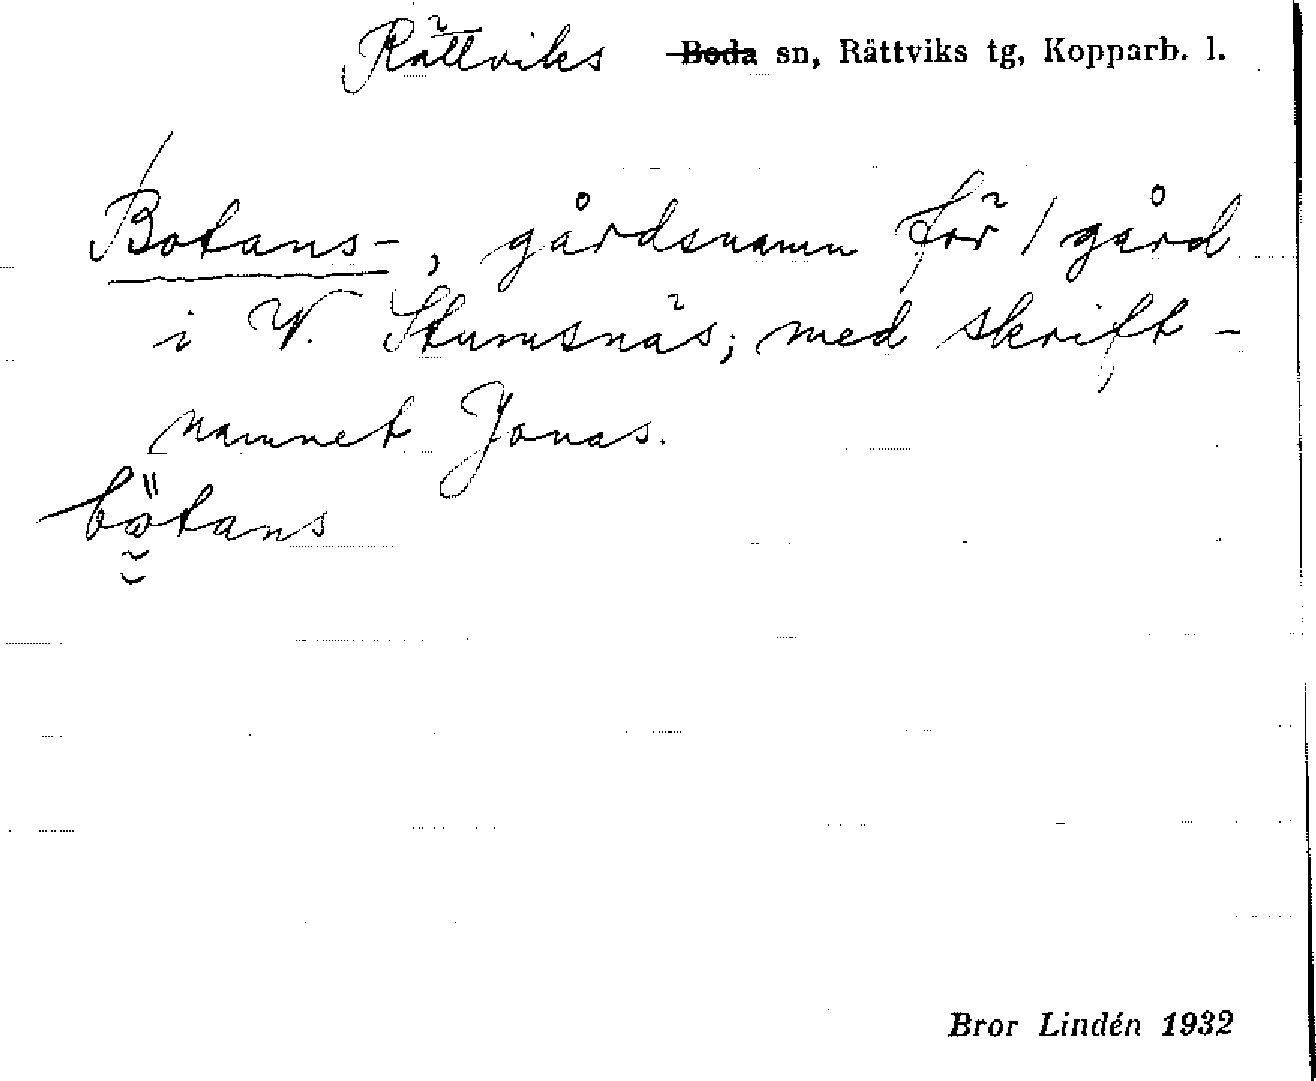 Rättviks Boda sn, Rättviks tg, Kopparb. l.
Botans-, gårdsnamn för 1 gård
i V. Stumsnäs; med skrift-
namnet Jonas.
bötans
Bror Lindén 1932